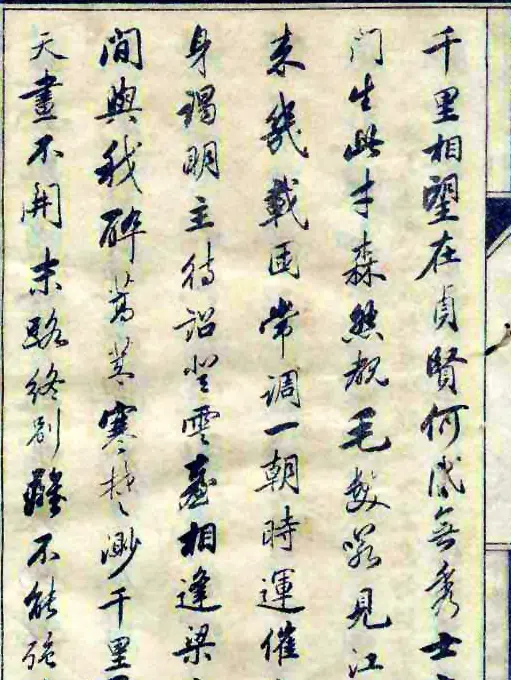 千里相望在貞賢何代無秀士
門生此才森然覩毛髮若見江
來幾載困常調一朝時運催
身謁明主待詔登雲臺相逢梁
間與我醉蒿萊寒楚渺千里
天晝不開末路終別離不能強